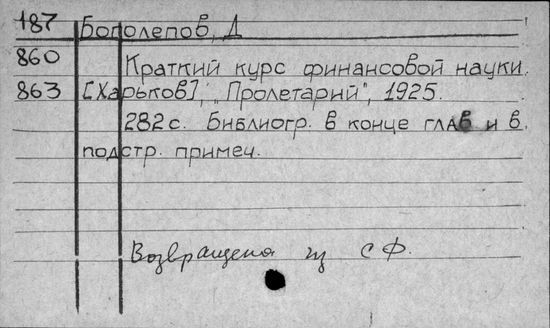 187 Боголепов, Д
860 Краткий курс финансовой науки.
863 [Харьков], „Пролетарий", 1925.
282 с. Библиогр. в конце глав и в
подстр. примеч.
Возвращена из СФ.